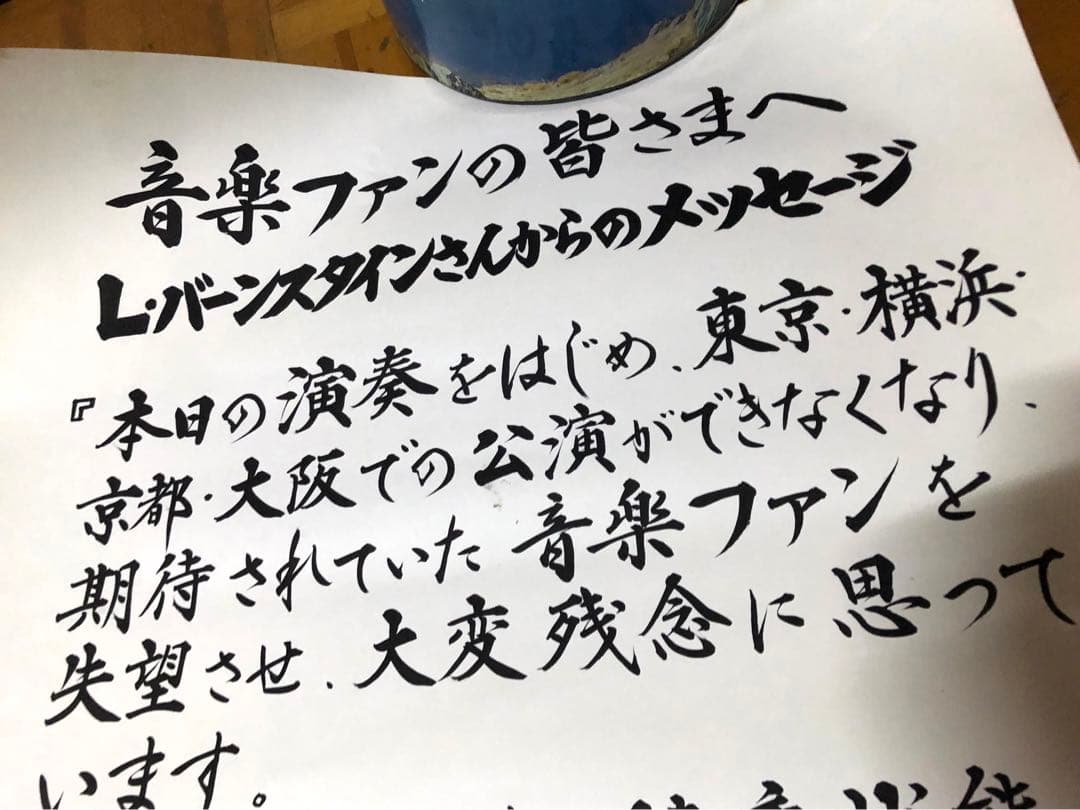 音楽ファンの皆さまへ
L・バーンスタインさんからのメッセージ
『本日の演奏をはじめ、東京・横浜・
京都・大阪での公演ができなくなり、
期待されていた音楽ファンを
失望させ、大変残念に思って
います。